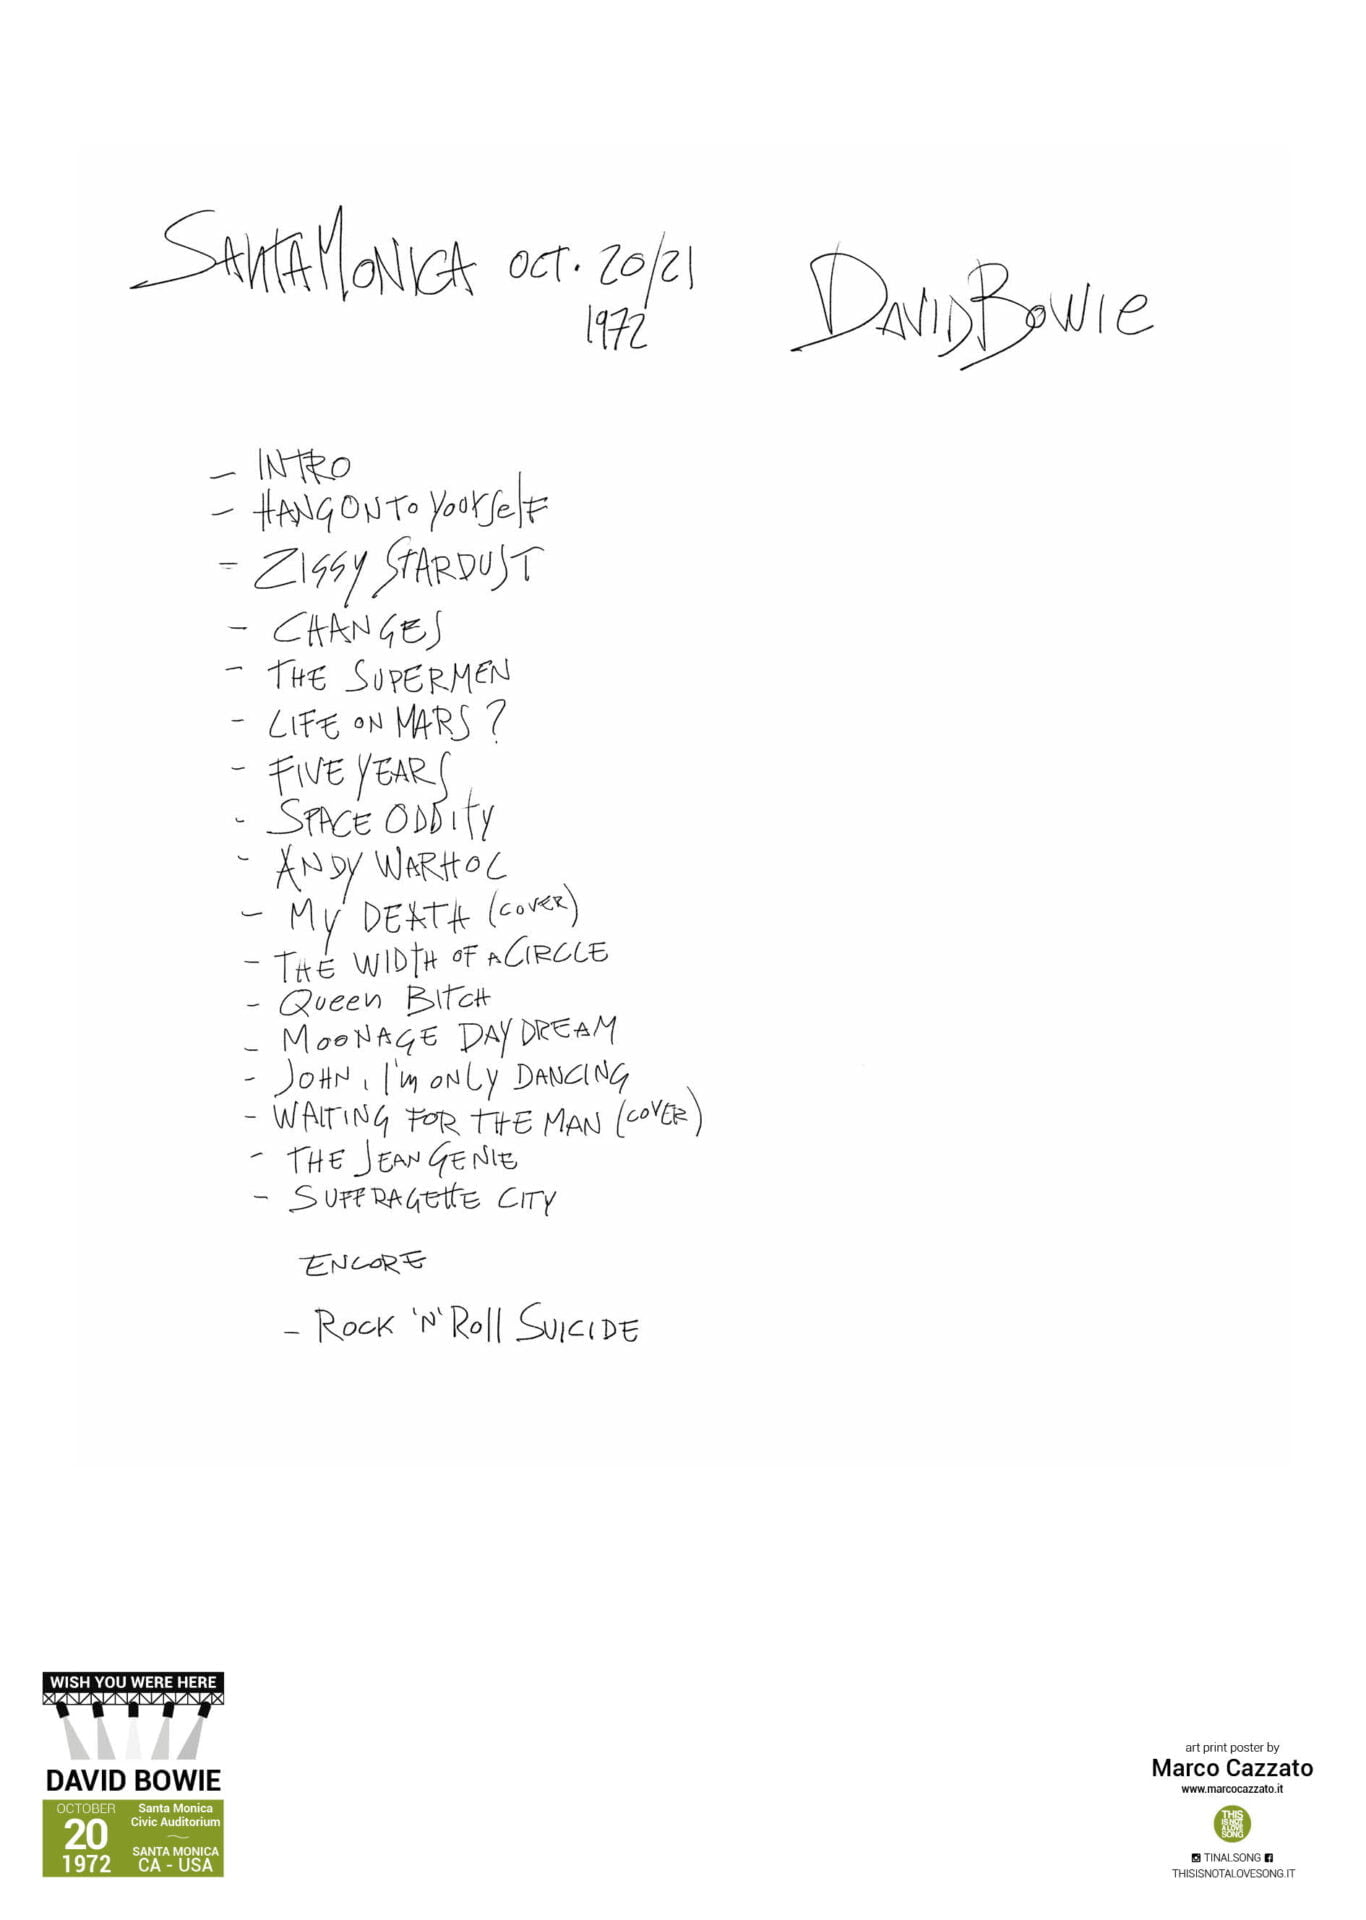 SANTA MONICA OCT. 20/21
1972
DAVID BOWIE
- INTRO
- HANG ON To YourSelF
- ZIGGY STARDUST
- CHANGES
- THE SUPERMEN
- LIFE ON MARS?
- FIVE YEARS
- SPACE ODDITY
- ANDY WARHOL
- MY DEATH (COVER)
- THE WIDTH OF A CIRCLE
- Queen BITCH
- MOONAGE DAYDREAM
- JOHN, I'm ONLY DANCING
- WAITING FOR THE MAN (COVER)
- THE JEAN GENIE
- SUFFRAGETTE CITY
ENCORE
- ROCK 'N' Roll SUICIDE
WISH YOU WERE HERE
DAVID BOWIE
OCTOBER
20
1972
Santa Monica
Civic Auditorium
SANTA MONICA
CA - USA
art print poster by
Marco Cazzato
www.marcocazzato.it
THIS
IS NOT
A LOVE
SONG
TINALSONG
THISISNOTALOVESONG.IT